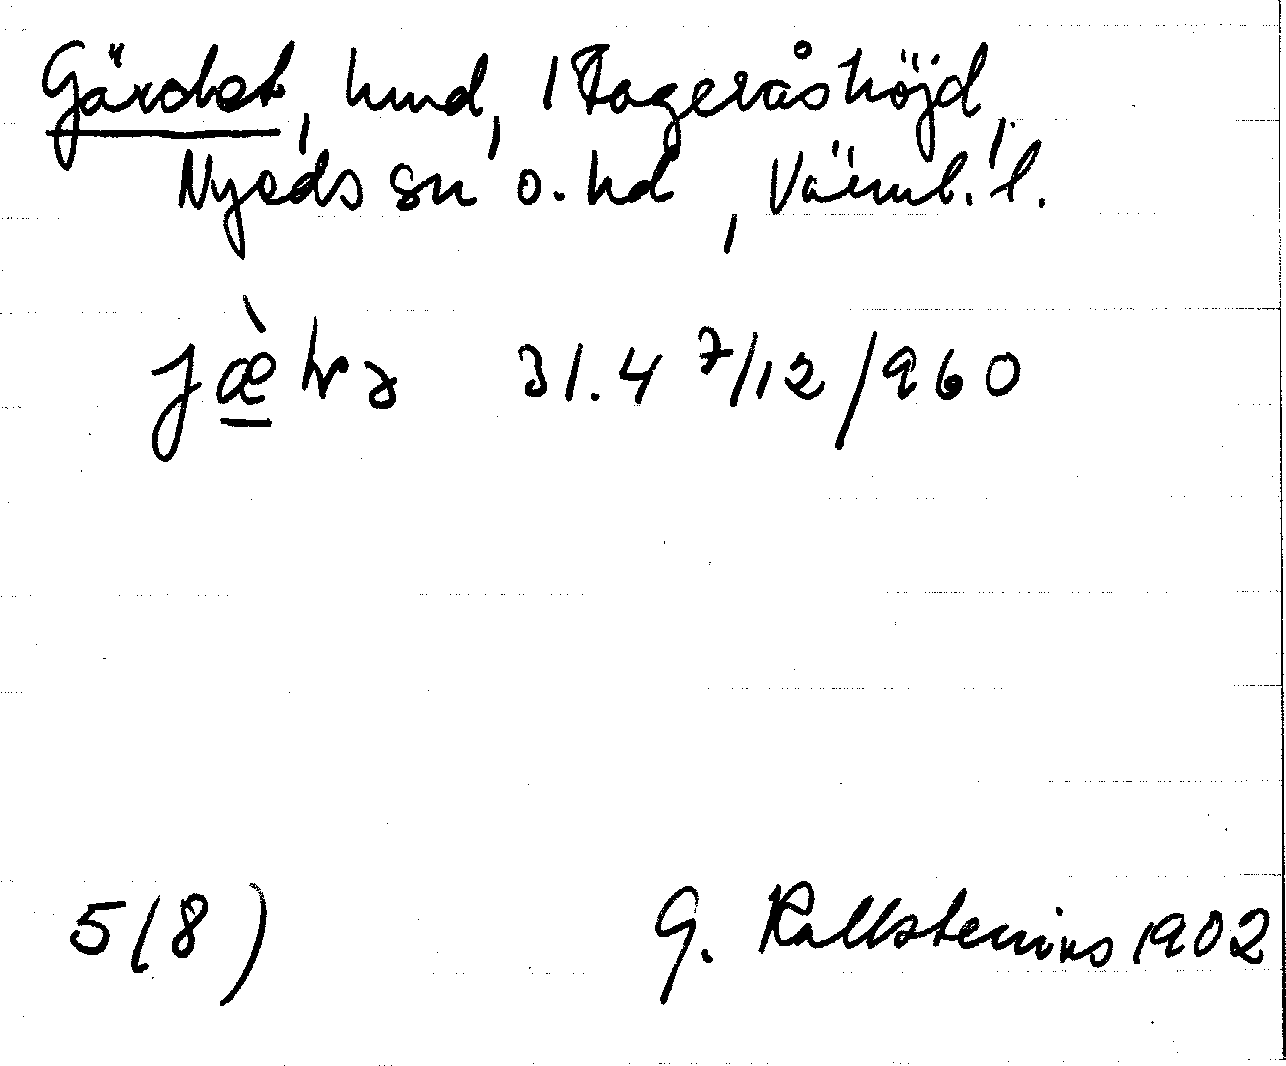 Gärdet, hmd, 1 Rageråshöjd,
Nyeds sn o. hd, Värml. l.
31.4 7/12/960
5(8) G. Kallstenius 1902